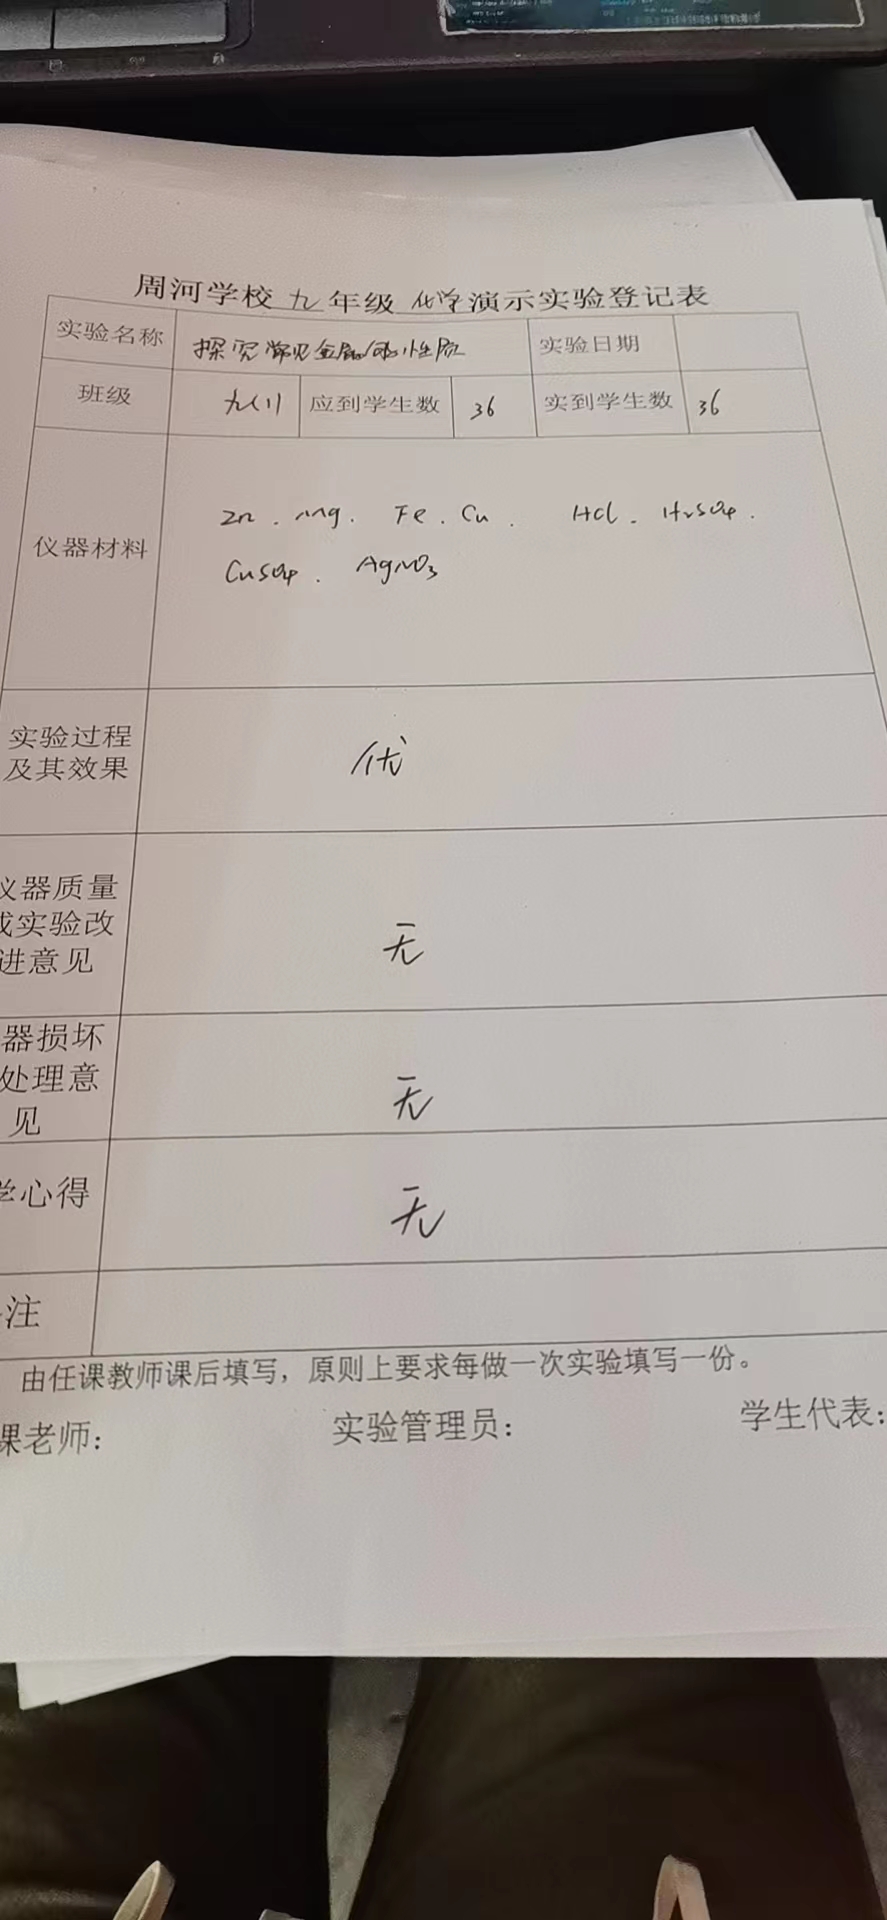 周河学校 九 年级 化学 演示实验登记表
实验名称 探究常见金属的化学性质 实验日期
班级 九(1) 应到学生数 36 实到学生数 36
仪器材料
Zn . Mg . Fe . Cu . HCl . H2SO4 .
CuSO4 . AgNO3
实验过程
及其效果
优
仪器质量
或实验改
进意见
无
器损坏
处理意
见
无
学心得
无
注
由任课教师课后填写，原则上要求每做一次实验填写一份。
课老师： 实验管理员： 学生代表：